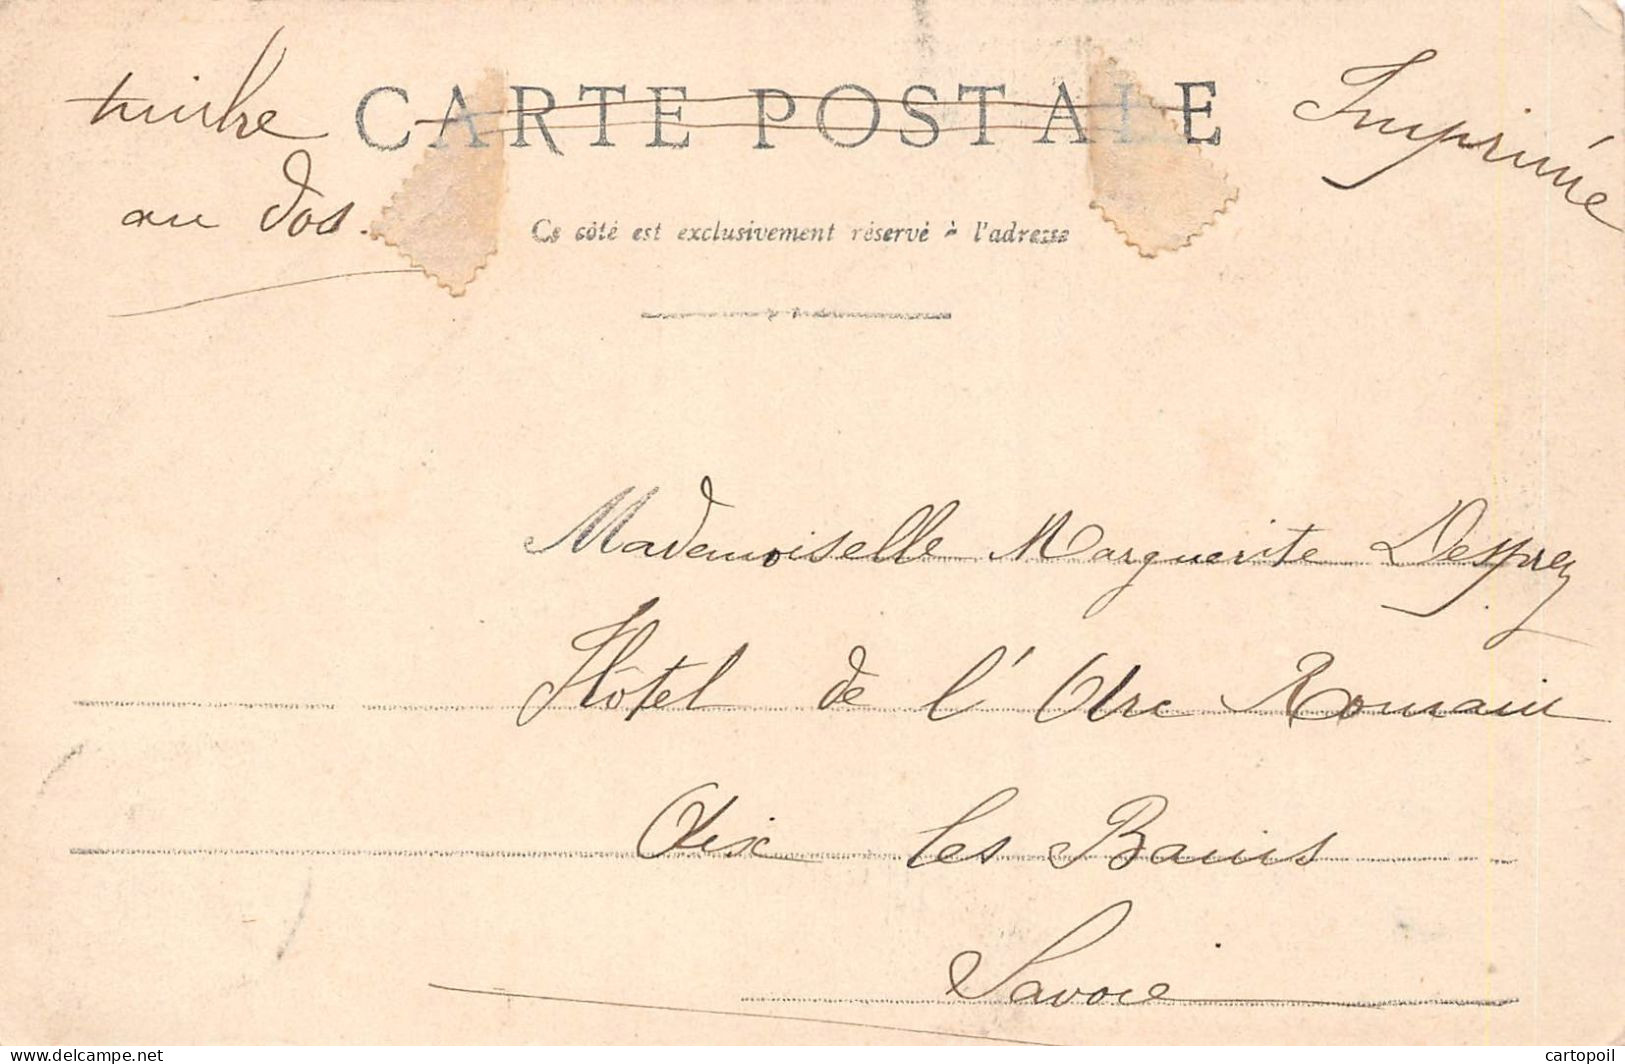 timbre
au dos.
CARTE POSTALE
Imprimée
Ce côté est exclusivement réservé à l'adresse
Mademoiselle Marguerite Desprez
Hôtel de l'Arc Romain
Aix les Bains
Savoie
www.delcampe.net
cartopoil